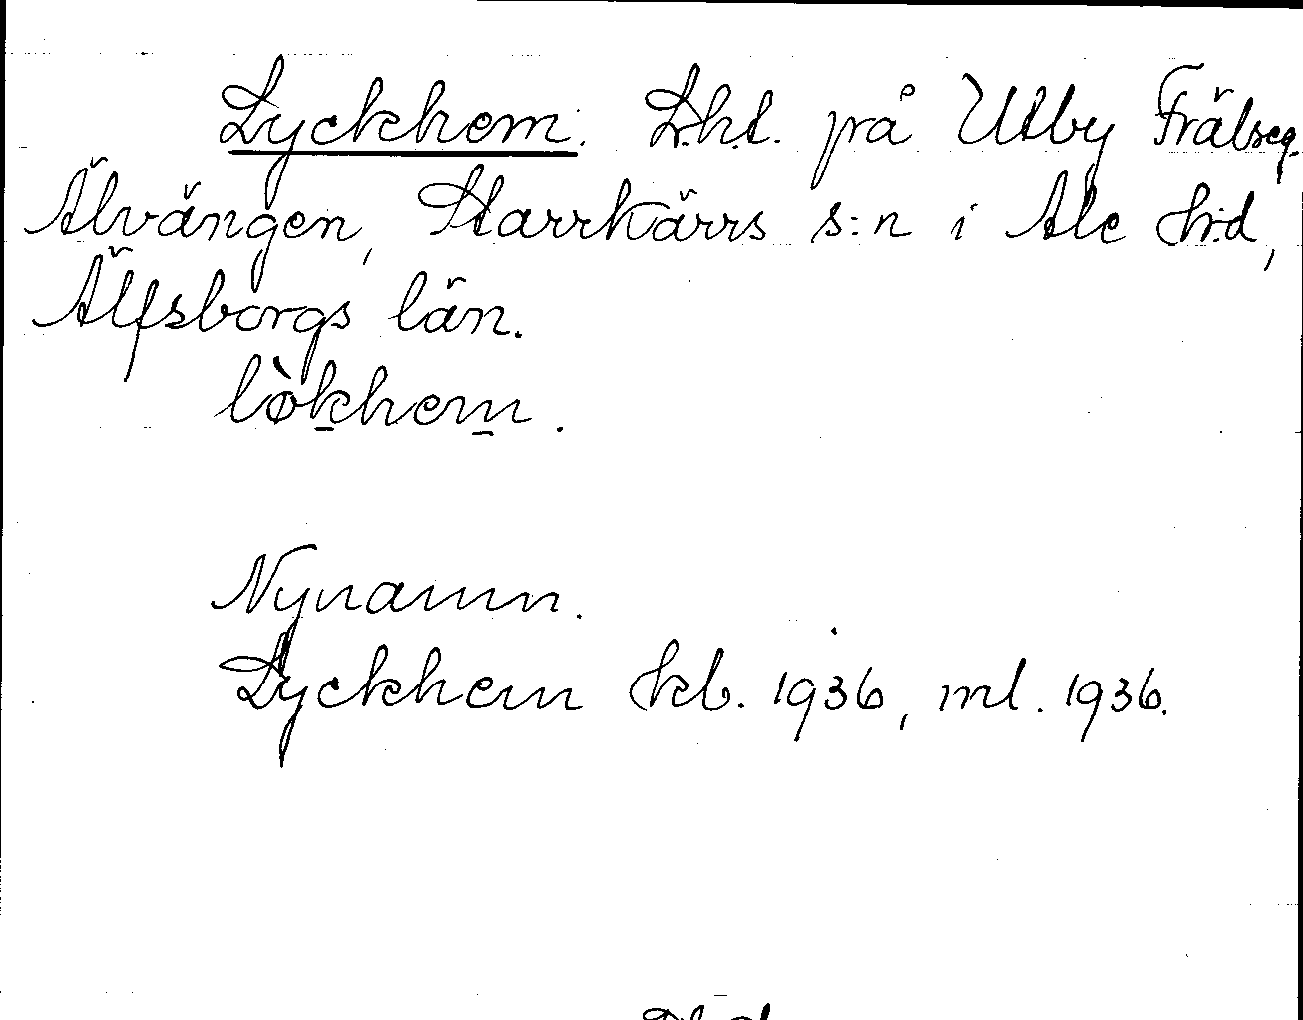 Lyckhem. L.h.t. på Utby Frälseg.
Älvängen, Starrkärrs s:n i Ale hrd,
Älfsborgs län.
lø̀khem.
Nynamn.
Lyckhem kb. 1936, ml. 1936.